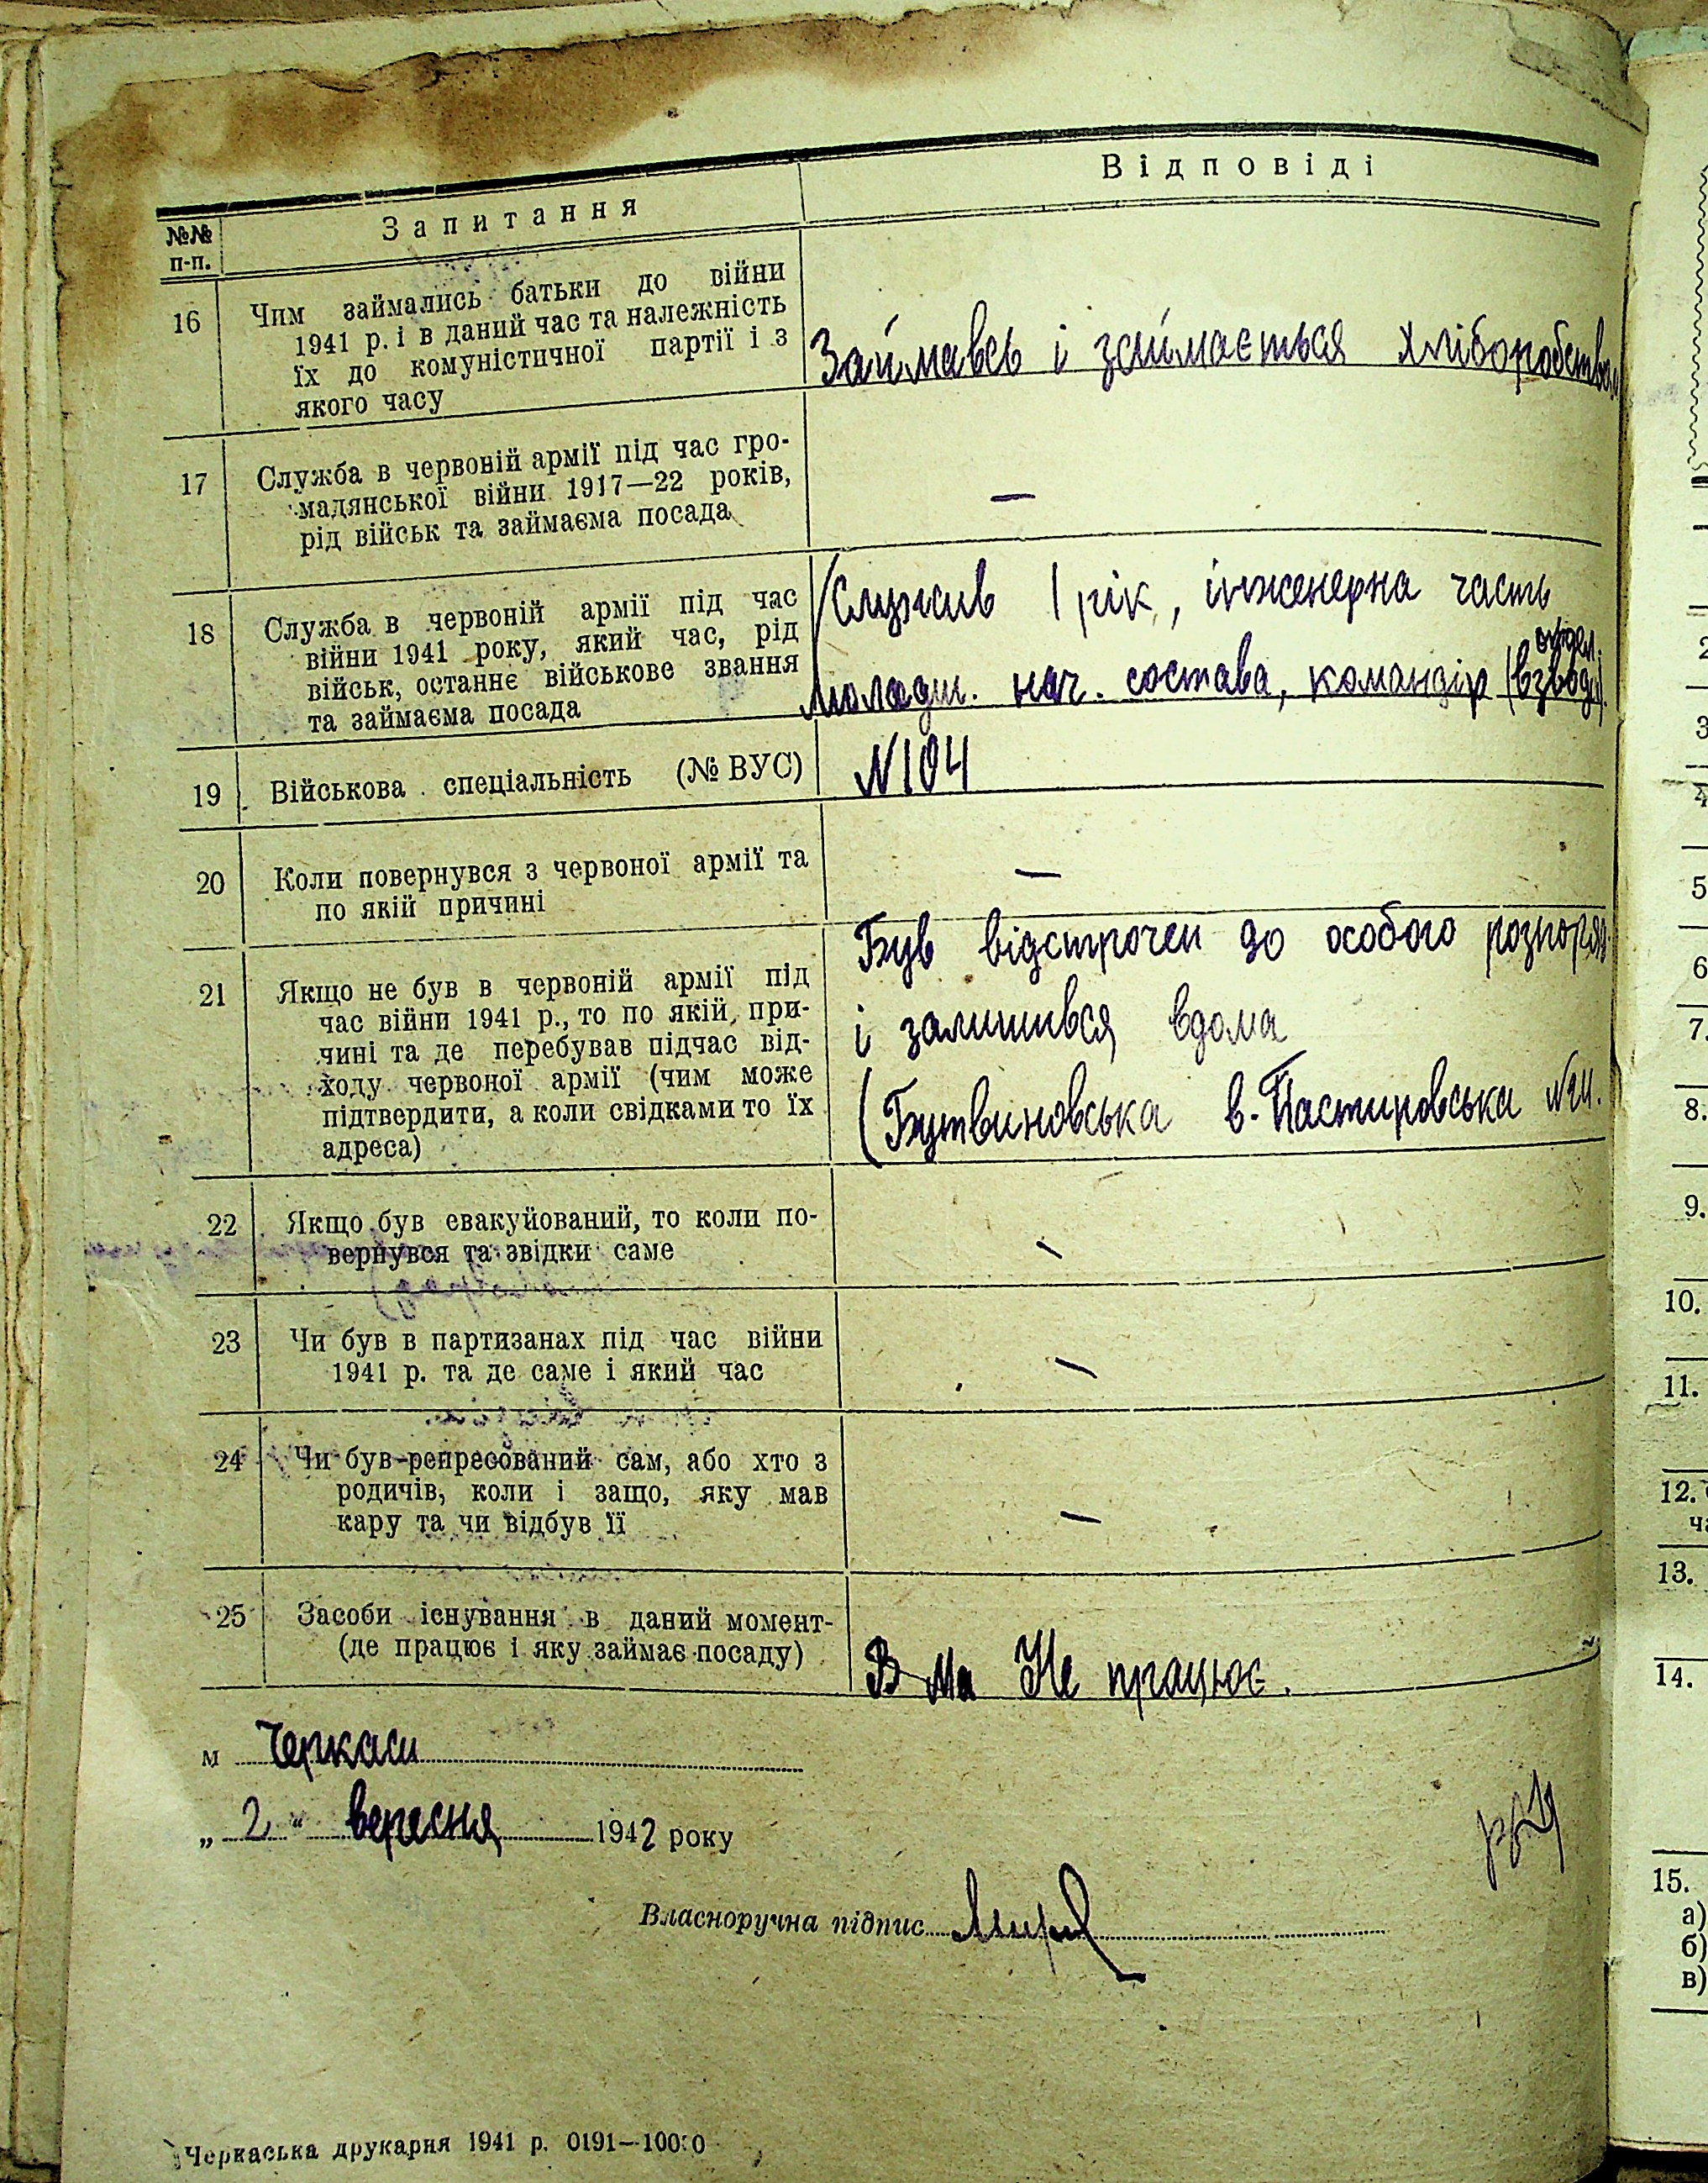 Відповіді
№№ п-п.
Запитання
16 Чим займались батьки до війни
1941 р. і в даний час та належність
їх до комуністичної партії і з
якого часу
Займавсь і займається хліборобством
17 Служба в червоній армії під час гро-
мадянської війни 1917—22 років,
рід військ та займаєма посада
—
18 Служба в червоній армії під час
війни 1941 року, який час, рід
військ, останнє військове звання
та займаєма посада
Служив 1 рік, інженерна часть
отдел.
молодш. нач. состава, командір (взвода).
19 Військова спеціальність (№ ВУС)
N 104
20 Коли повернувся з червоної армії та
по якій причині
—
21 Якщо не був в червоній армії під
час війни 1941 р., то по якій при-
чині та де перебував підчас від-
ходу червоної армії (чим може
підтвердити, а коли свідками то їх
адреса)
Був відстрочен до особого розпоряд.
і залишився вдома
(Бутвиновська в. Пастировська
22 Якщо був евакуйований, то коли по-
вернувся та звідки саме
—
23 Чи був в партизанах під час війни
1941 р. та де саме і який час
—
24 Чи був репресований сам, або хто з
родичів, коли і защо, яку мав
кару та чи відбув її
—
25 Засоби існування в даний момент-
(де працює і яку займає посаду)
Не працює.
м Черкаси
„ 2 “ вересня 1942 року
Власноручна підпис
Черкаська друкарня 1941 р. 0191—10000
3
4
5
6
7.
8.
9.
10.
11.
12.
13.
14.
15.
а)
б)
в)